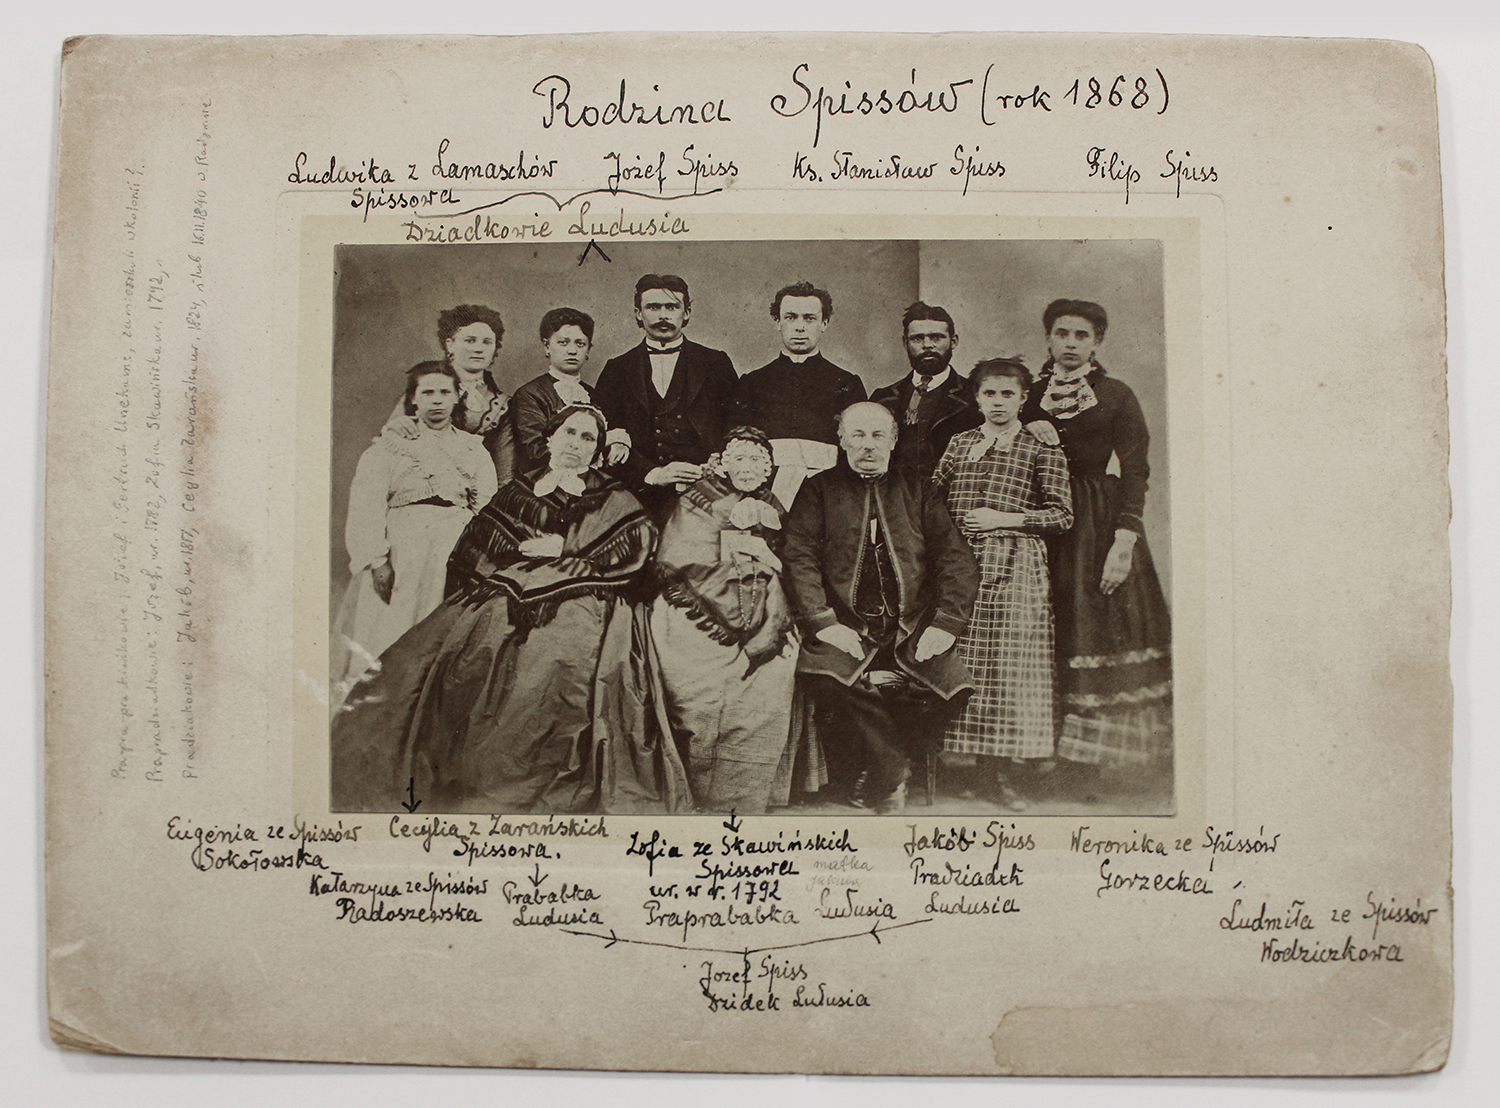 Rodzina Spissów (rok 1868)
Ludwika z Lamaschów Józef Spiss Ks. Stanisław Spiss Filip Spiss
Spissowa
Dziadkowie Ludusia
Eugenia ze Spissów Cecylia z Zarańskich Zofia ze Skawińskich Jakób Spiss Weronika ze Spissów
Sokołowska Spissowa. Spissowa matka Pradziadek Gorzecka
Katarzyna ze Spissów Prababka ur. w r. 1792
Radoszewska Ludusia Praprababka Ludusia Ludusia
Ludmiła ze Spissów
Wodziczkowa
Józef Spiss
Dzidek Ludusia
Prapradziadkowie: Józef, ur. 1782, Zofia Skawińska ur. 1792,
Pradziadkowie: Jakób, ur. 1817, Cecylia Zarańska ur. 1824, ślub